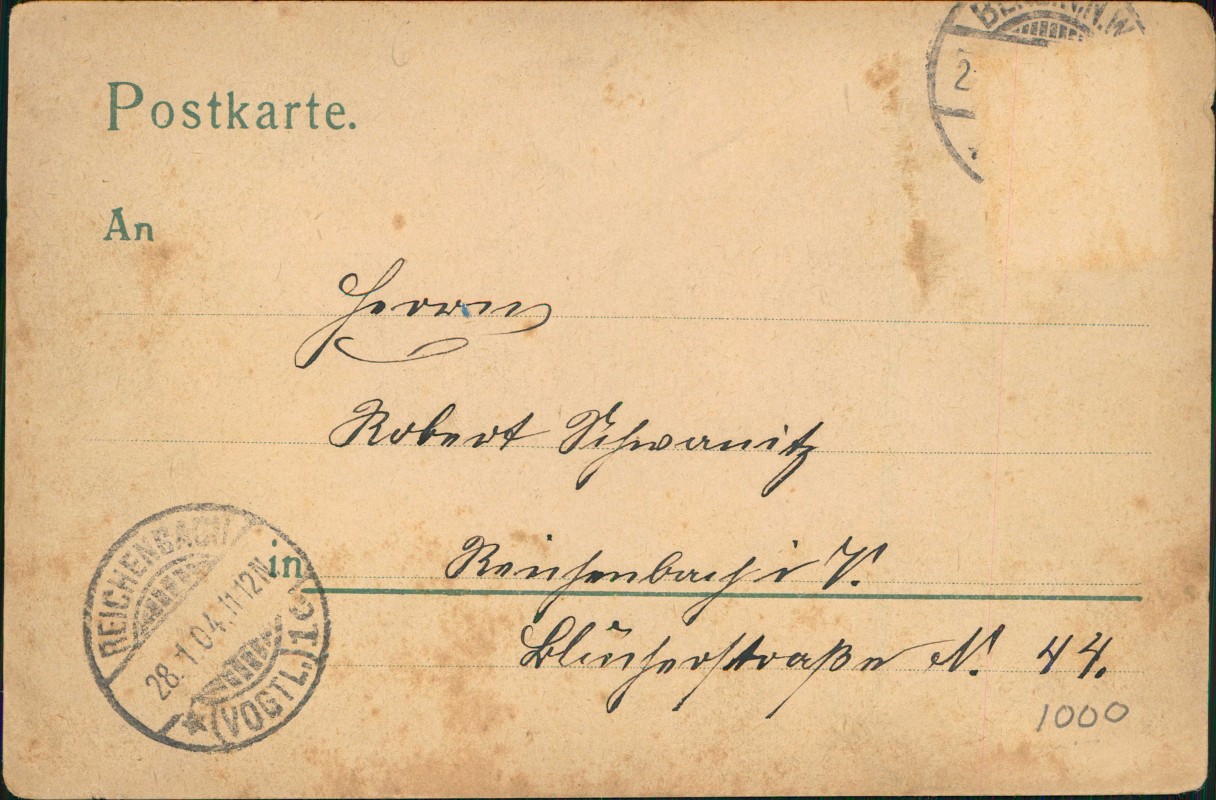 BERLIN.N.W.
2
Postkarte.
An
Herrn
Robert Schwanitz
in Reichenbach i V.
Blücherstraße N. 44.
1000
REICHENBACH
28.1.04.11-12N
(VOGTL.) 1c